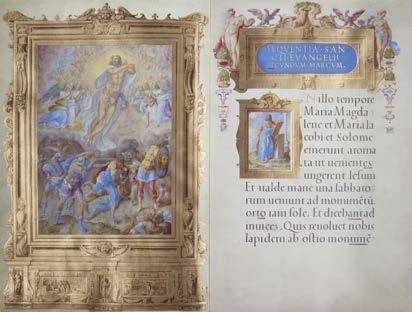 SEQVENTIA·SAN
CTI EVANGELII
SECVNDVM·MARCVM.
N illo tempore
Maria Magda
lene et Maria Ia
cobi et Solome
emerunt aroma
ta ut uenientes
ungerent Iesum
Et ualde mane una sabbato
rum ueniunt ad monumētū,
orto iam sole. Et dicebant ad
inuicēs. Quis reuoluet nobis
lapidem ab ostio monumē